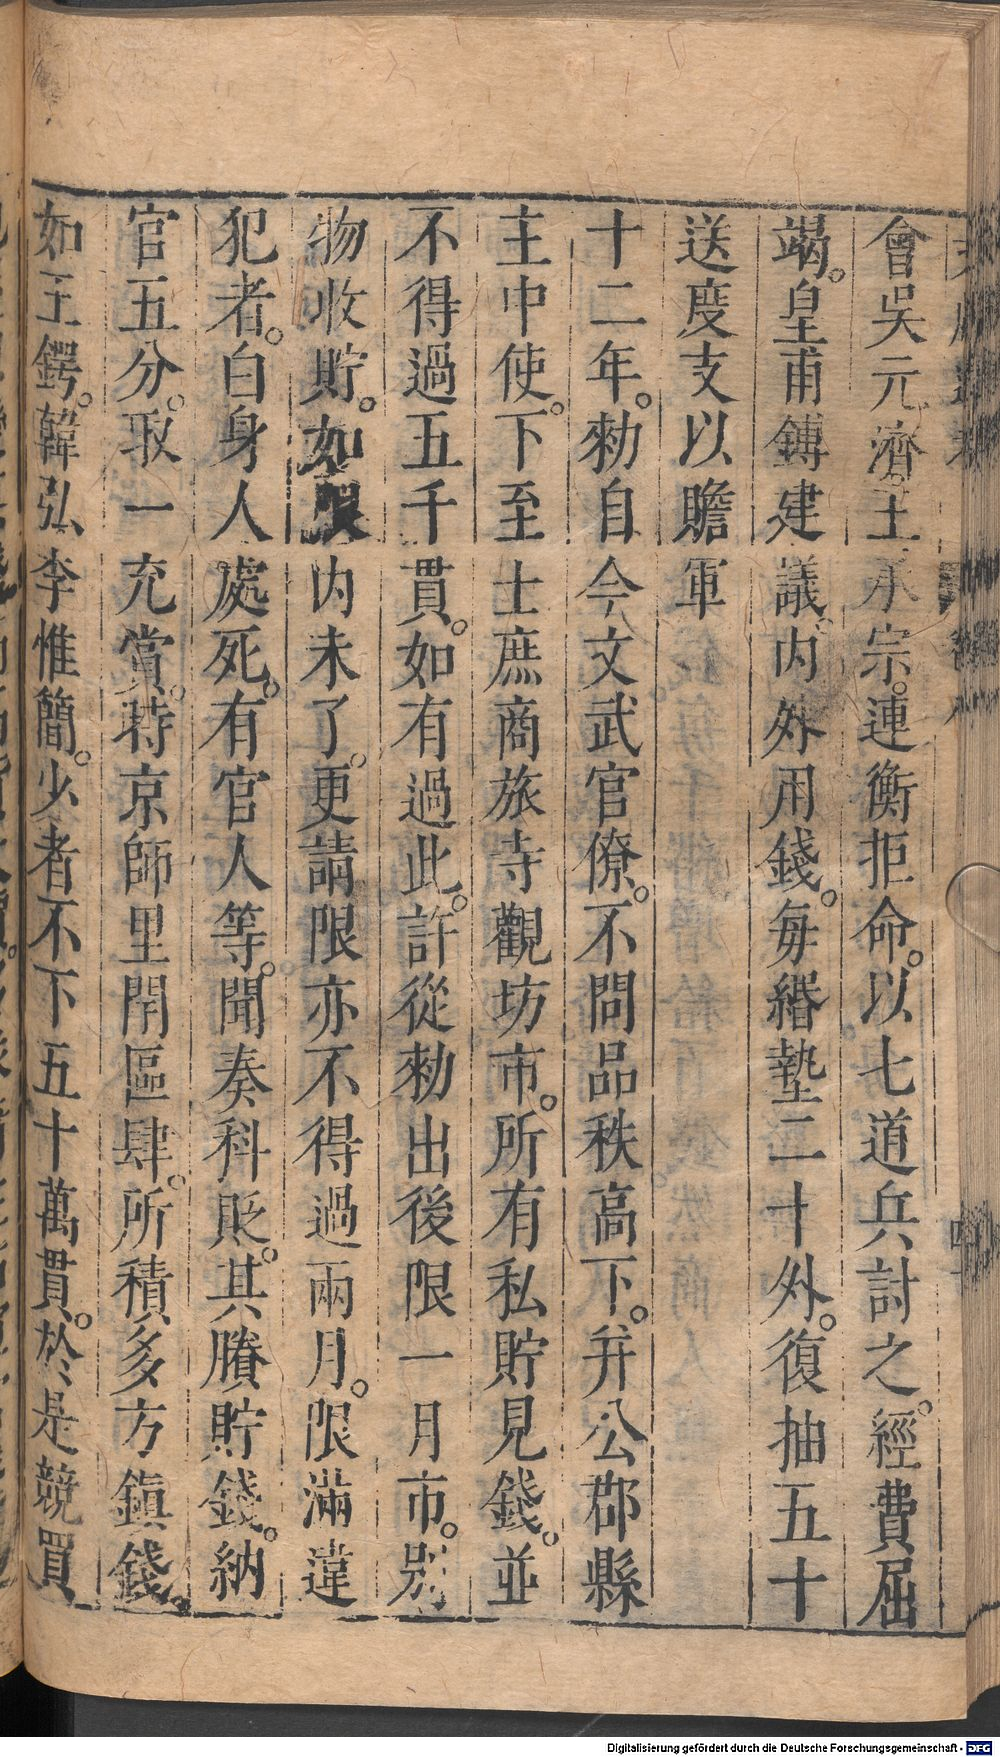 會吳元濟。王承宗。連衡拒命。以七道兵討之。經費屈
竭。皇甫鎛建議。內外用錢。每緡墊二十外。復抽五十
送度支以贍軍
十二年。勑自今文武官僚。不問品秩高下。并公郡縣
主中使。下至士庶商旅寺觀坊市。所有私貯見錢。並
不得過五千貫。如有過此。許從勑出後限一月市。別
物收貯。如限內未了。更請限亦不得過兩月。限滿違
犯者。白身人處死。有官人等。聞奏科貶。其賸貯錢。納
官五分。取一充賞。時京師里閈區肆。所積多方鎮錢。
如王鍔。韓弘李惟簡。少者不下五十萬貫。於是競買
Digitalisierung gefördert durch die Deutsche Forschungsgemeinschaft - DFG